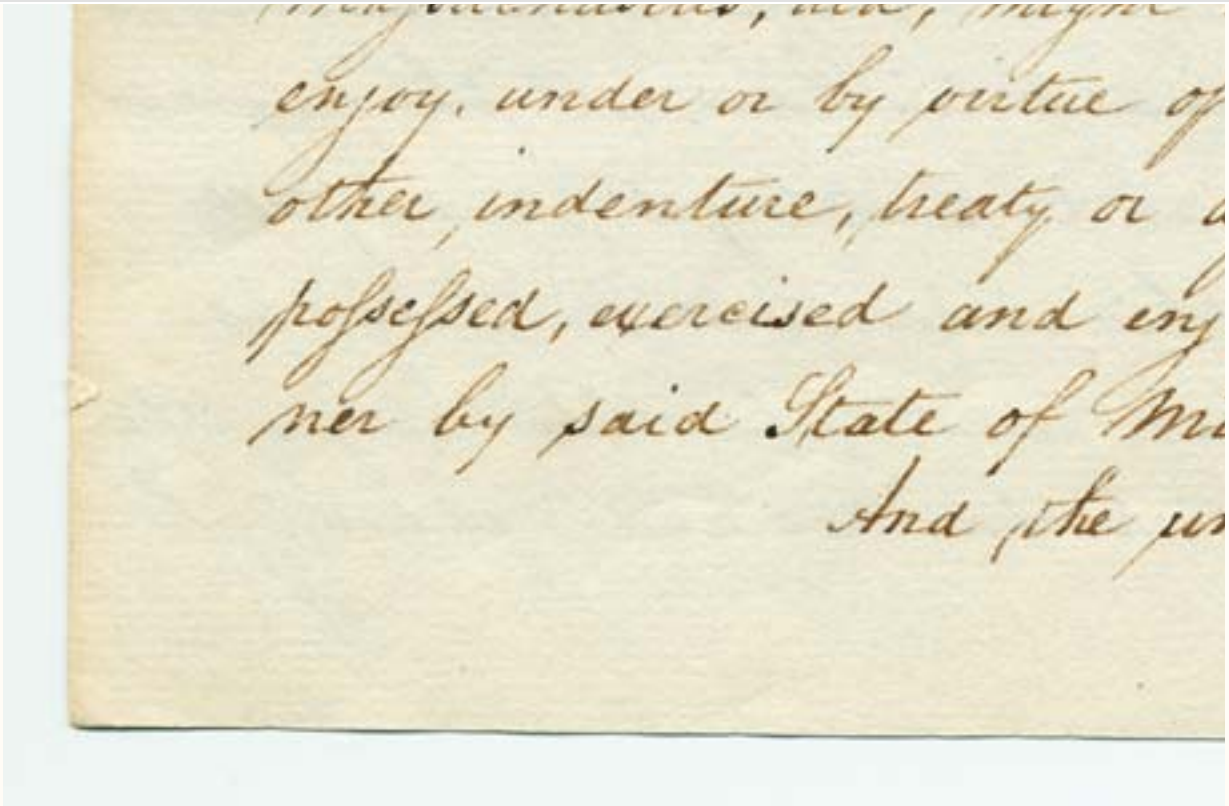 Maſsachusetts, did, might
enjoy, under or by virtue of
other indenture, treaty or
poſseſsed, exercised and enj
ner by said State of Ma
And the un